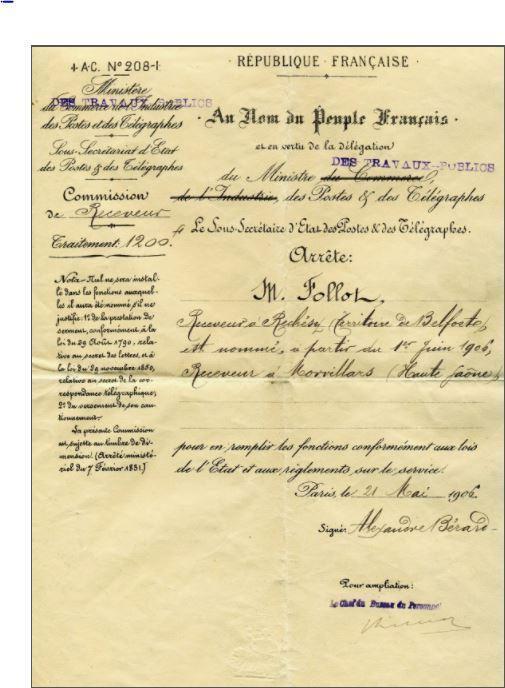 4 A.C. Nº 208-1
Ministère
du Commerce de l'Industrie
DES TRAVAUX-PUBLICS
des Postes et des Télégraphes
Sous-Secrétariat d'État
des Postes & des Télégraphes
Commission
de Receveur
Traitement: 1200.
Nota _ Nul ne sera instal-
lé dans les fonctions auxquel-
les il aura été nommé s'il ne
justifie: 1º de la prestation de
serment, conformément à la
loi du 29 Août 1790, rela-
tive au secret des lettres, et à
la loi du 29 novembre 1850,
relative au secret de la cor-
respondance télégraphique;
2º du versement de son cau-
tionnement.
La présente Commission
est sujette au timbre de di-
mension. (Arrêté ministé-
riel du 7 Février 1831)
· RÉPUBLIQUE FRANÇAISE ·
· Au Nom du Peuple Français ·
et en vertu de la délégation
DES TRAVAUX-PUBLICS
du Ministre du Commerce,
de l'Industrie, des Postes & des Télégraphes
Le Sous-Secrétaire d'État des Postes & des Télégraphes.
Arrête:
M. Follot,
Receveur à Réchésy (territoire de Belfort),
est nommé, à partir du 1er Juin 1906,
Receveur à Morvillars (Haute Saône),
pour en remplir les fonctions conformément aux lois
de l'État et aux règlements sur le service.
Paris, le 21 Mai 1906.
Signé: Alexandre Bérard
Pour ampliation:
Le Chef du Bureau du Personnel